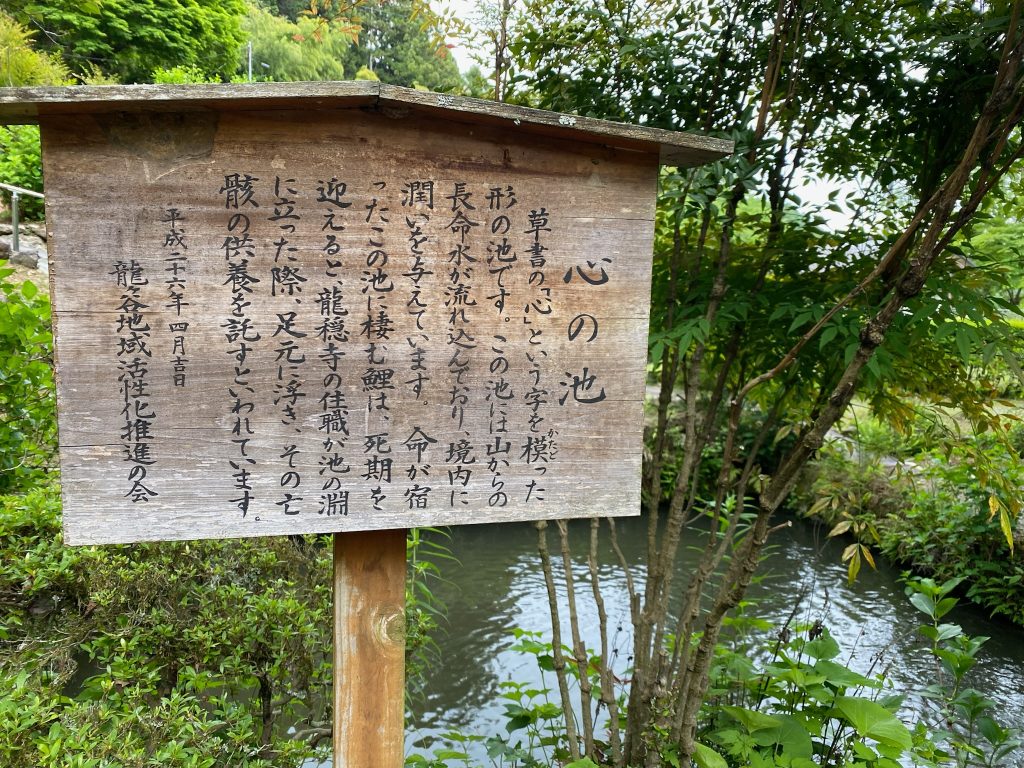 心の池
草書の「心」という字を模った
かたど
形の池です。この池には山からの
長命水が流れ込んでおり、境内に
潤いを与えています。命が宿
ったこの池に棲む鯉は、死期を
迎えると、龍穏寺の住職が池の淵
に立った際、足元に浮き、その亡
骸の供養を託すといわれています。
平成二十六年四月吉日
龍谷地域活性化推進の会